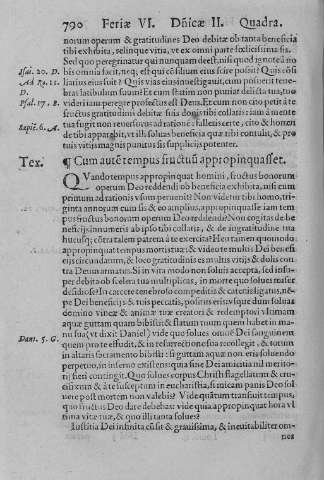 790 Feriæ VI. Dñicæ II. Quadra.
norum operum & gratitudines Deo debitæ ob tanta beneficia
tibi exhibita, relinque vitia, vt ex omni parte fœlicissima sis.
Sed quo peregrinatur qui nunquam deest, nisi quod ignotẽ a no
Isai. 20. D.
bis omnia facit, neq; est qui cõsilium eius scire possit? Quis cõsi
Ad Ro. 11.
liarius eius fuit? Quis vias eius inuestigauit, cum posuerit tene-
D.
bras latibulum suum? Et cum statim non puniat delicta tua, tuo
Psal. 17. B.
videri iam peregre profectus est Deus. Et cum non cito petit à te
fructus gratitudinis debitæ suis donis tibi collatis: iam à mente
tua fugit non reuersurus ad rationẽ
Sapiẽ. 6. A.
cito, & horrendè
tibi apparebit, vt illi soluas beneficia quæ tibi contulit, & pro
tuis vitijs magnis punitus sis supplicijs potenter.
Tex. ¶ Cum autẽ tempus fructuũ appropinquasset.
Quando tempus appropinquat homini, fructus bonorum
operum Deo reddendi ob beneficia exhibita, nisi cum
primum ad rationis vsum peruenit? Non videtur tibi homo, tri-
ginta annorum cum sis & eo amplius, appropinquasse iam tem
pus fructus bonorum operum Deo reddendi? Non cogitas de be
neficijs innumeris ab ipso tibi collatis, & de ingratitudine tua
hucusq; cõtra talem patrem à te exercita? Heu tamen quomodo
appropinquat tempus mortis tuæ: & vide ote multis Dei benefi
cijs circundatum, & loco gratitudinis es multis vitijs & dolis con
tra Deum armatus. Si in vita modo non soluis accepta, sed insu-
per debita ob scelera tua multiplicas, in morte quo solues miser
desidiose? In carcere tenebroso compeditus & catenis ligatus, nẽ-
pe Dei beneficijs & tuis peccatis, positus eris vsque dum soluas
domino vineæ & animæ tuæ creatori & redemptori vltimam
aquæ guttam quam bibisti: & flatum tuum quem habet in ma-
nu sua (vt dixit Daniel) vide quo solues omnẽ Dei sanguinem
Dani. 5. G.
quem pro te effudit, & in resurrectione sua recollegit, & totum
in altaris sacramento bibisti: si guttam aquæ non eris soluendo
perpetuo, in inferno existens quia sine Dei amicitia nil merito-
rij fieri contingit. Quo solues corpus Christi flagellatum & cru-
cifixum & à te susceptum in eucharistia, si micam panis Deo sol
uere post mortem non valebis? Vide quãtum transiuit tempus,
quo fructus Deo dare debebas: vide quia appropinquat hora vl
tima vitæ tuæ, & quo illi tanta solues?
Iustitia Dei infinita cũ sit & grauissima, & ineuitabiliter om-
nes